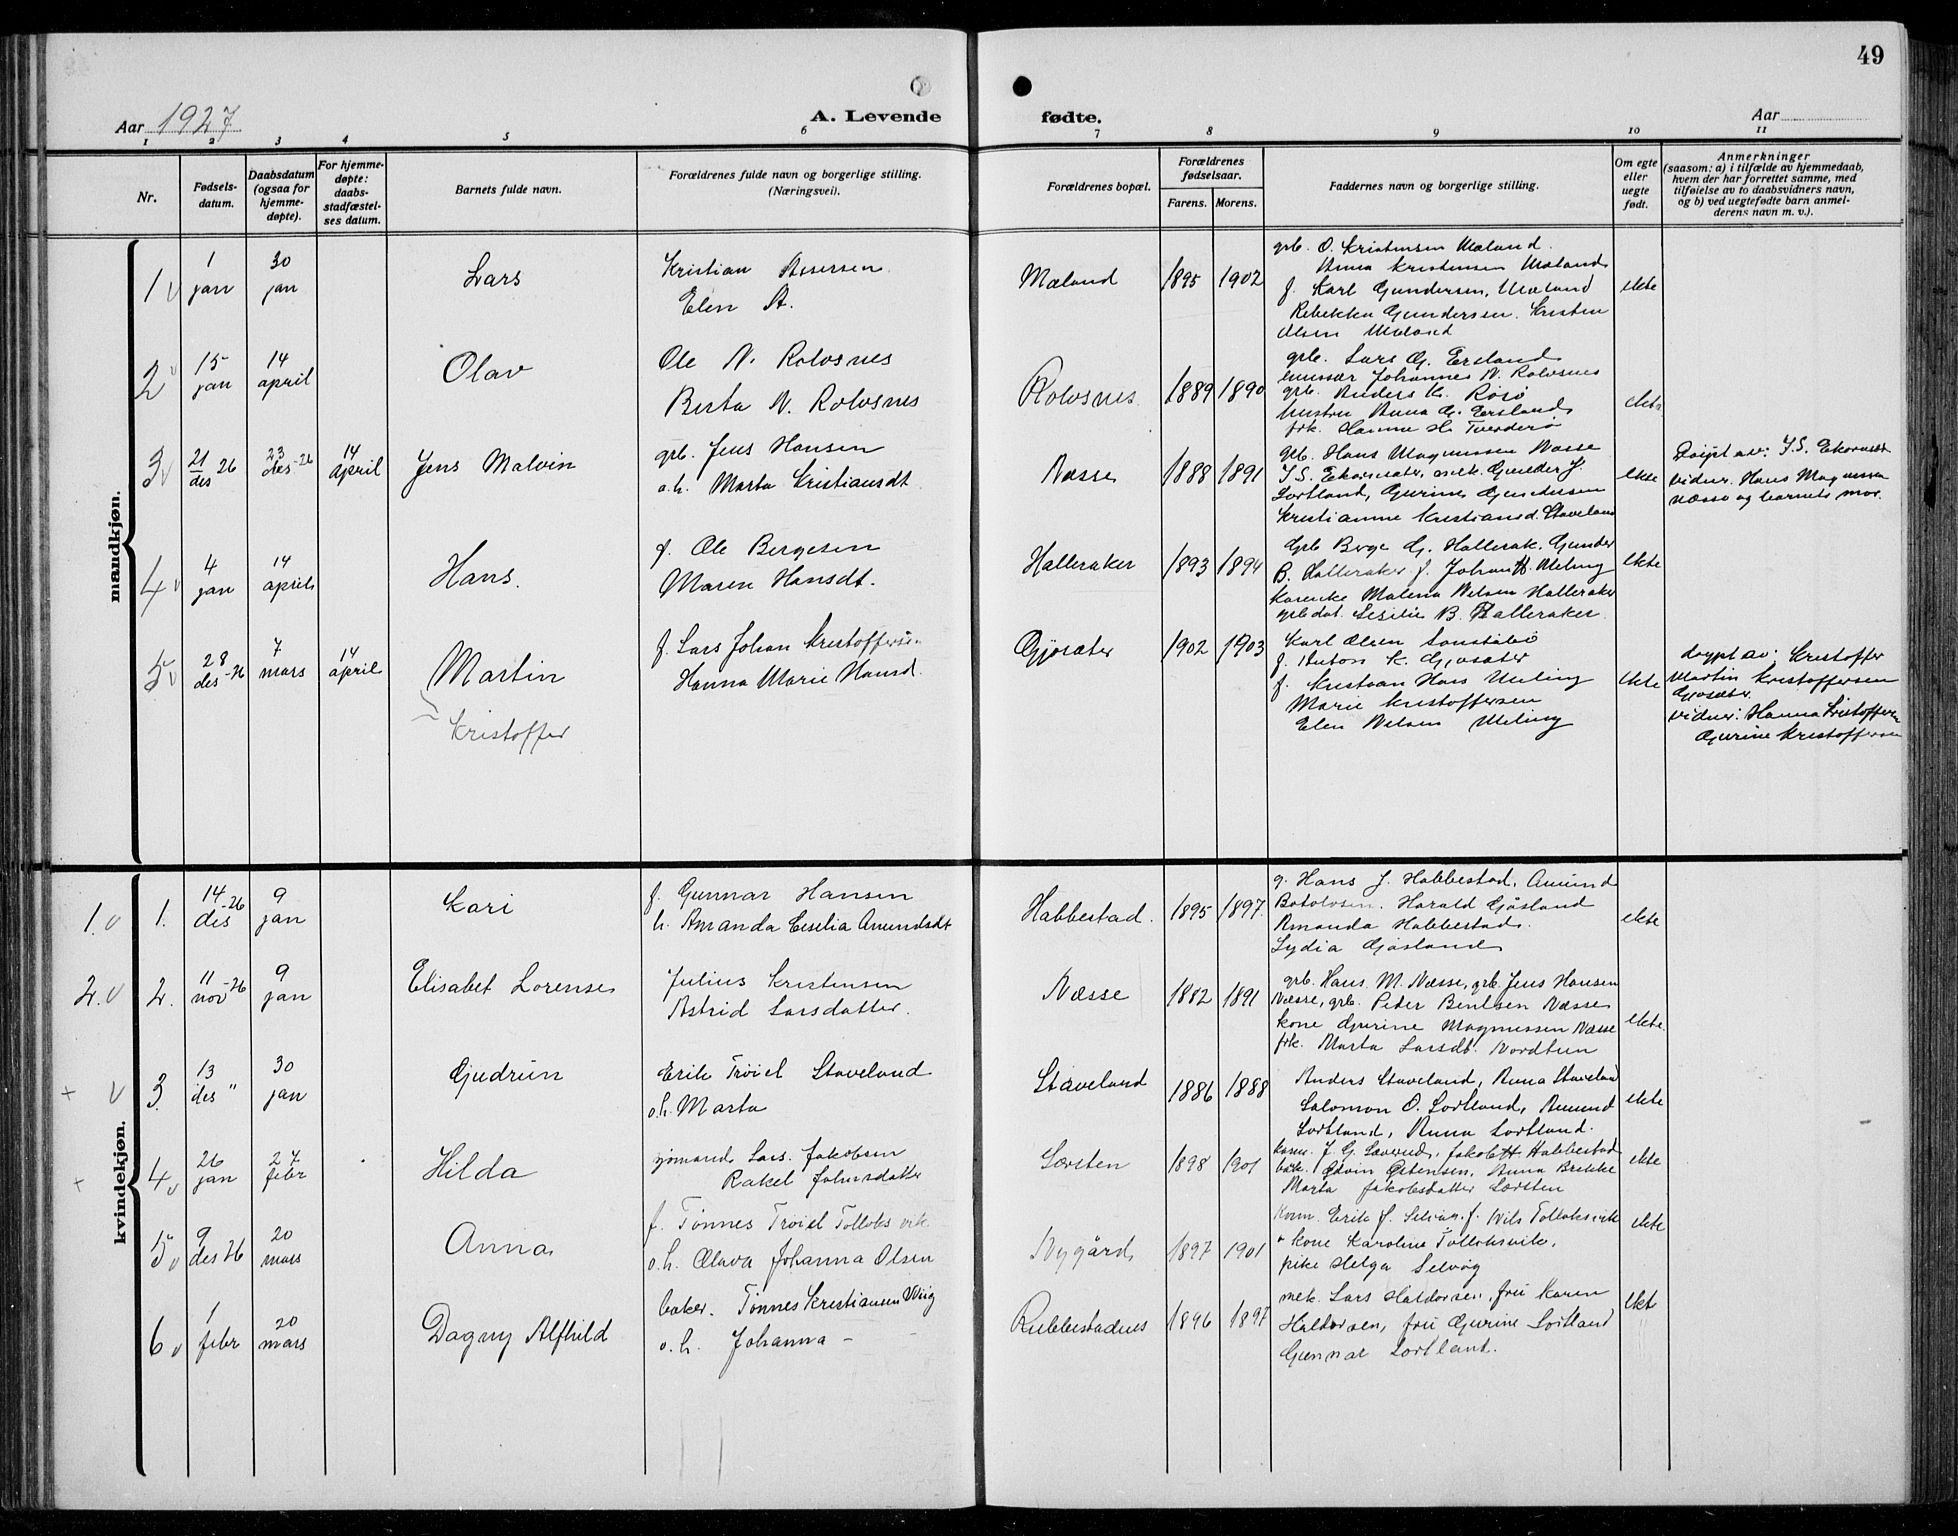 49
Aar 1927
A. Levende
fødte.
Aar
1 2 3 4 5 6 7 8 9 10 11
Nr.
Fødsels-
datum.
Daabsdatum
(ogsaa for
hjemme-
døpte).
For hjemme-
døpte:
daabs-
stadfæstel-
ses datum.
Barnets fulde navn.
Forældrenes fulde navn og borgerlige stilling.
(Næringsvei).
Forældrenes bopæl.
Forældrenes
fødselsaar.
Farens. Morens.
Faddernes navn og borgerlige stilling.
Om egte
eller
uegte
født.
Anmerkninger
(saasom: a) i tilfælde av hjemmedaab,
hvem der har forrettet samme, med
tilføielse av to daabsvidners navn,
og b) ved uegtefødte barn anmel-
derens navn m. v.).
mandkjøn.
1 v
1
jan
30
jan
Lars
Kristian Assersen
Elen A.
Mæland
1895 1902
grb. O. Kristensen Mæland.
Anna Kristensen Mæland
f. Karl Gundersen, Mæland
Rebekka Gundersen. Kristen
Olsen Mæland
ekte
2 v
15
jan
14
april
Olav
Ole N. Rolvsnes
Berta N. Rolvsnes
Rolvsnes
1889 1890
grb. Lars G. Ersland
emissær Johannes N. Rolvsnes
grb. Anders K. Rosø
hustru Anna G. Ersland
frk. Hanna H.
ekte
3 v
21 26
des
23
des-26
14
april
Jens Malvin
grb. Jens Hansen
o.h. Marta Kristiansdt.
Næsse
1888 1891
grb. Hans Magnussen Næsse
I.S. Ekornsæter, Gunder J.
Lortland, Gurine Gundersen
Kristianne Kristiansd. Staveland
ekte
Døipt av: I.S. Ekornsæt
vidner. Hans Magnussen
Næsse og barnets mor.
4 v
4
jan
14
april
Hans.
f. Ole Bergesen
Maren Hansdt.
Halleraker
1893 1894
Grb Berge G. Hallerak. Gunder
B. Halleraker f. Johan H Meling
Malena Nelsen Halleraker
grb dat. Sesilie B. Halleraker.
ekte
5 v
28
des-26
7
mars
14
april
Martin
Kristoffer
f. Lars Johan Kristoffersen
Hanna Marie Hansd.
Gjøsæter
1902 1903
Karl Olsen
f. Anton K. Gjøsæter
f. Kristian Hans Meling
Marie Kristoffersen
Elen Nelsen Meling
ekte
døypt av: Kristoffer
Martin Kristoffersen
Gjøsæter.
vidner: Hanna Kristoffersen
Gurine Kristoffersen
kvindekjøn.
1. v 1.
14-26
des
9
jan
Kari
f. Gunnar Hansen
h. Amanda Cesilia Amundsdt
Habbestad.
1895 1897.
g. Hans J. Habbestad, Amund
Botolvsen. Harald Gåsland
Amanda Habbestad.
Lydia Gåsland
ekte
2. v 2.
11-26
nov
9
jan
Elisabet Lorense
Julius Kristensen
Astrid Larsdatter.
Næsse
1882 1891
grb. Hans M. Næsse, grb. Jens Hansen
Næsse, grb. Peter Bentsen Næsse
kone Gurine Magnussen Næsse
frk. Marta Larsdt. Nordtun
ekte.
+ v 3.
13
des "
30
jan
Gudrun
Erik Trøiel Staveland
o.h. Marta
Staveland
1886 1888
Anders Staveland, Anna Staveland
Salomon O. Lortland, Amund
Lortland, Anna Lortland.
ekte
+ 4 v
26
jan
27
febr
Hilda
Lars Jakobsen
Rakel Johnsdatter
Særsten
1898 1901
J G. Sæverud, Jakob H Habbestad
bak. Edvin Østensen, Anna Brekke
Marta Jakobsdatter Særsten
ekte
5 v
9
des 26
20
mars
Anna
f. Tønnes Trøiel Tolloksvik
o.h. Olava Johanna Olsen
Nygård
1897 1901
Erik J. Selvåg. f. Nils Tolloksvik
kone Karoline Tolloksvik,
pike Helga Selvåg
ekte
6 v
1
febr
20
mars
Dagny Alfhild
baker. Tønnes Kristiansen Wiig
o.h. Johanna -
Rubbestadnes
1896 1897
mek. Lars Haldorsen, fru Karen
Haldorsen, fru Gurine Lortland
Gunnar Lortland.
ekt